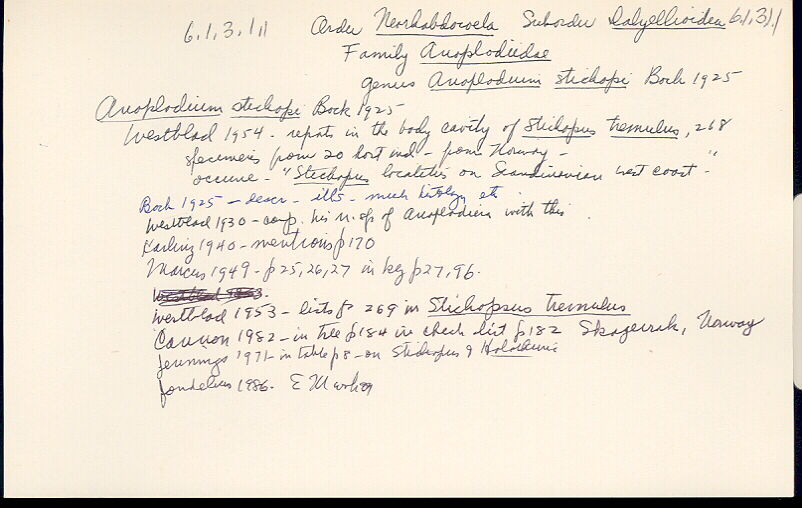 6.1.3.1.1 Order Neorhabdocoela Suborder Dalyellioidea 6.1.3.1.1
Family Anoplodiidae
genus Anoplodium stichopi Bock 1925
Anoplodium stichopi Bock 1925
Westblad 1954 - reports in the body cavity of Stichopus tremulus, 268
specimens from 20 host ind - from Norway -
occurs - "Stichopus localities on Scandinavian west coast - "
Bock 1925 - descr - ills - much histology etc
Westblad 1930 - comp. his n. sp of Anoplodium with this
Karling 1940 - mentions p 170
Marcus 1949 - p 25, 26, 27 in key p 27, 96.
Westblad 1953.
Westblad 1953 - lists p 269 in Stichopsus tremulus
Cannon 1982 - in tree p 184 in check list p 182 Skagerrak, Norway
Jennings 1971 - in table p 8 - on Stichopus & Holothuria
Jondelius 1986. E M work